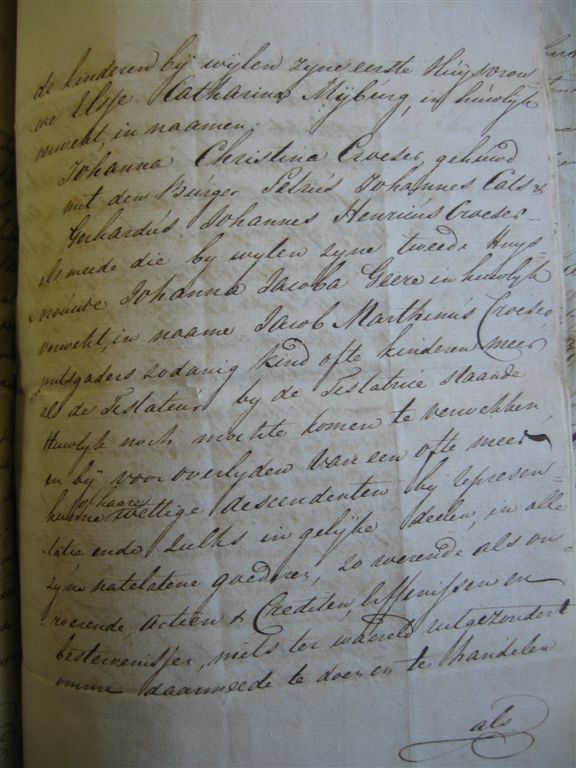 de kinderen bij wylen zyne eerste Huysvrou
we Elsje Catharina Mijburg, in huwlyk
verwekt, in naamen,
Johanna Christina Croeser, gehuwd
met den Burger Petrus Johannes Cats &
Gerhardus Johannes Henricus Croeser
als meede die by wylen zyne tweede Huys-
vrouwe Johanna Jacoba Geere in huwlyk
verwekt, in naame Jacob Marthinus Croeser
mitsgaders zodanig kind ofte kinderen meer
als de Testateur by de Testatrice staande
Huwlyk noch mochte komen te verwekken,
en bij vooroverlyden van een ofte meer
hunne of haare wettige descendenten by represen-
tatie ende zulks in gelyke deelen, in alle
zyne natelatene goederen, zo roerende als on-
roerende, actien & Crediten, liffenissen en
bestervenissen, niets ter waereld uitgezondert
omme daarmeede te doen en te handelen
als